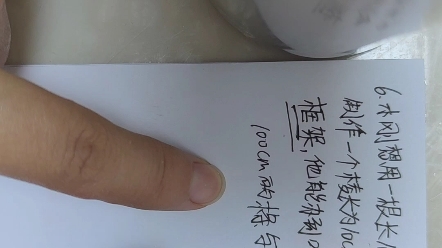 6.木刚想用一根长
制作一个棱长为10
框架,他能办到
100cm的